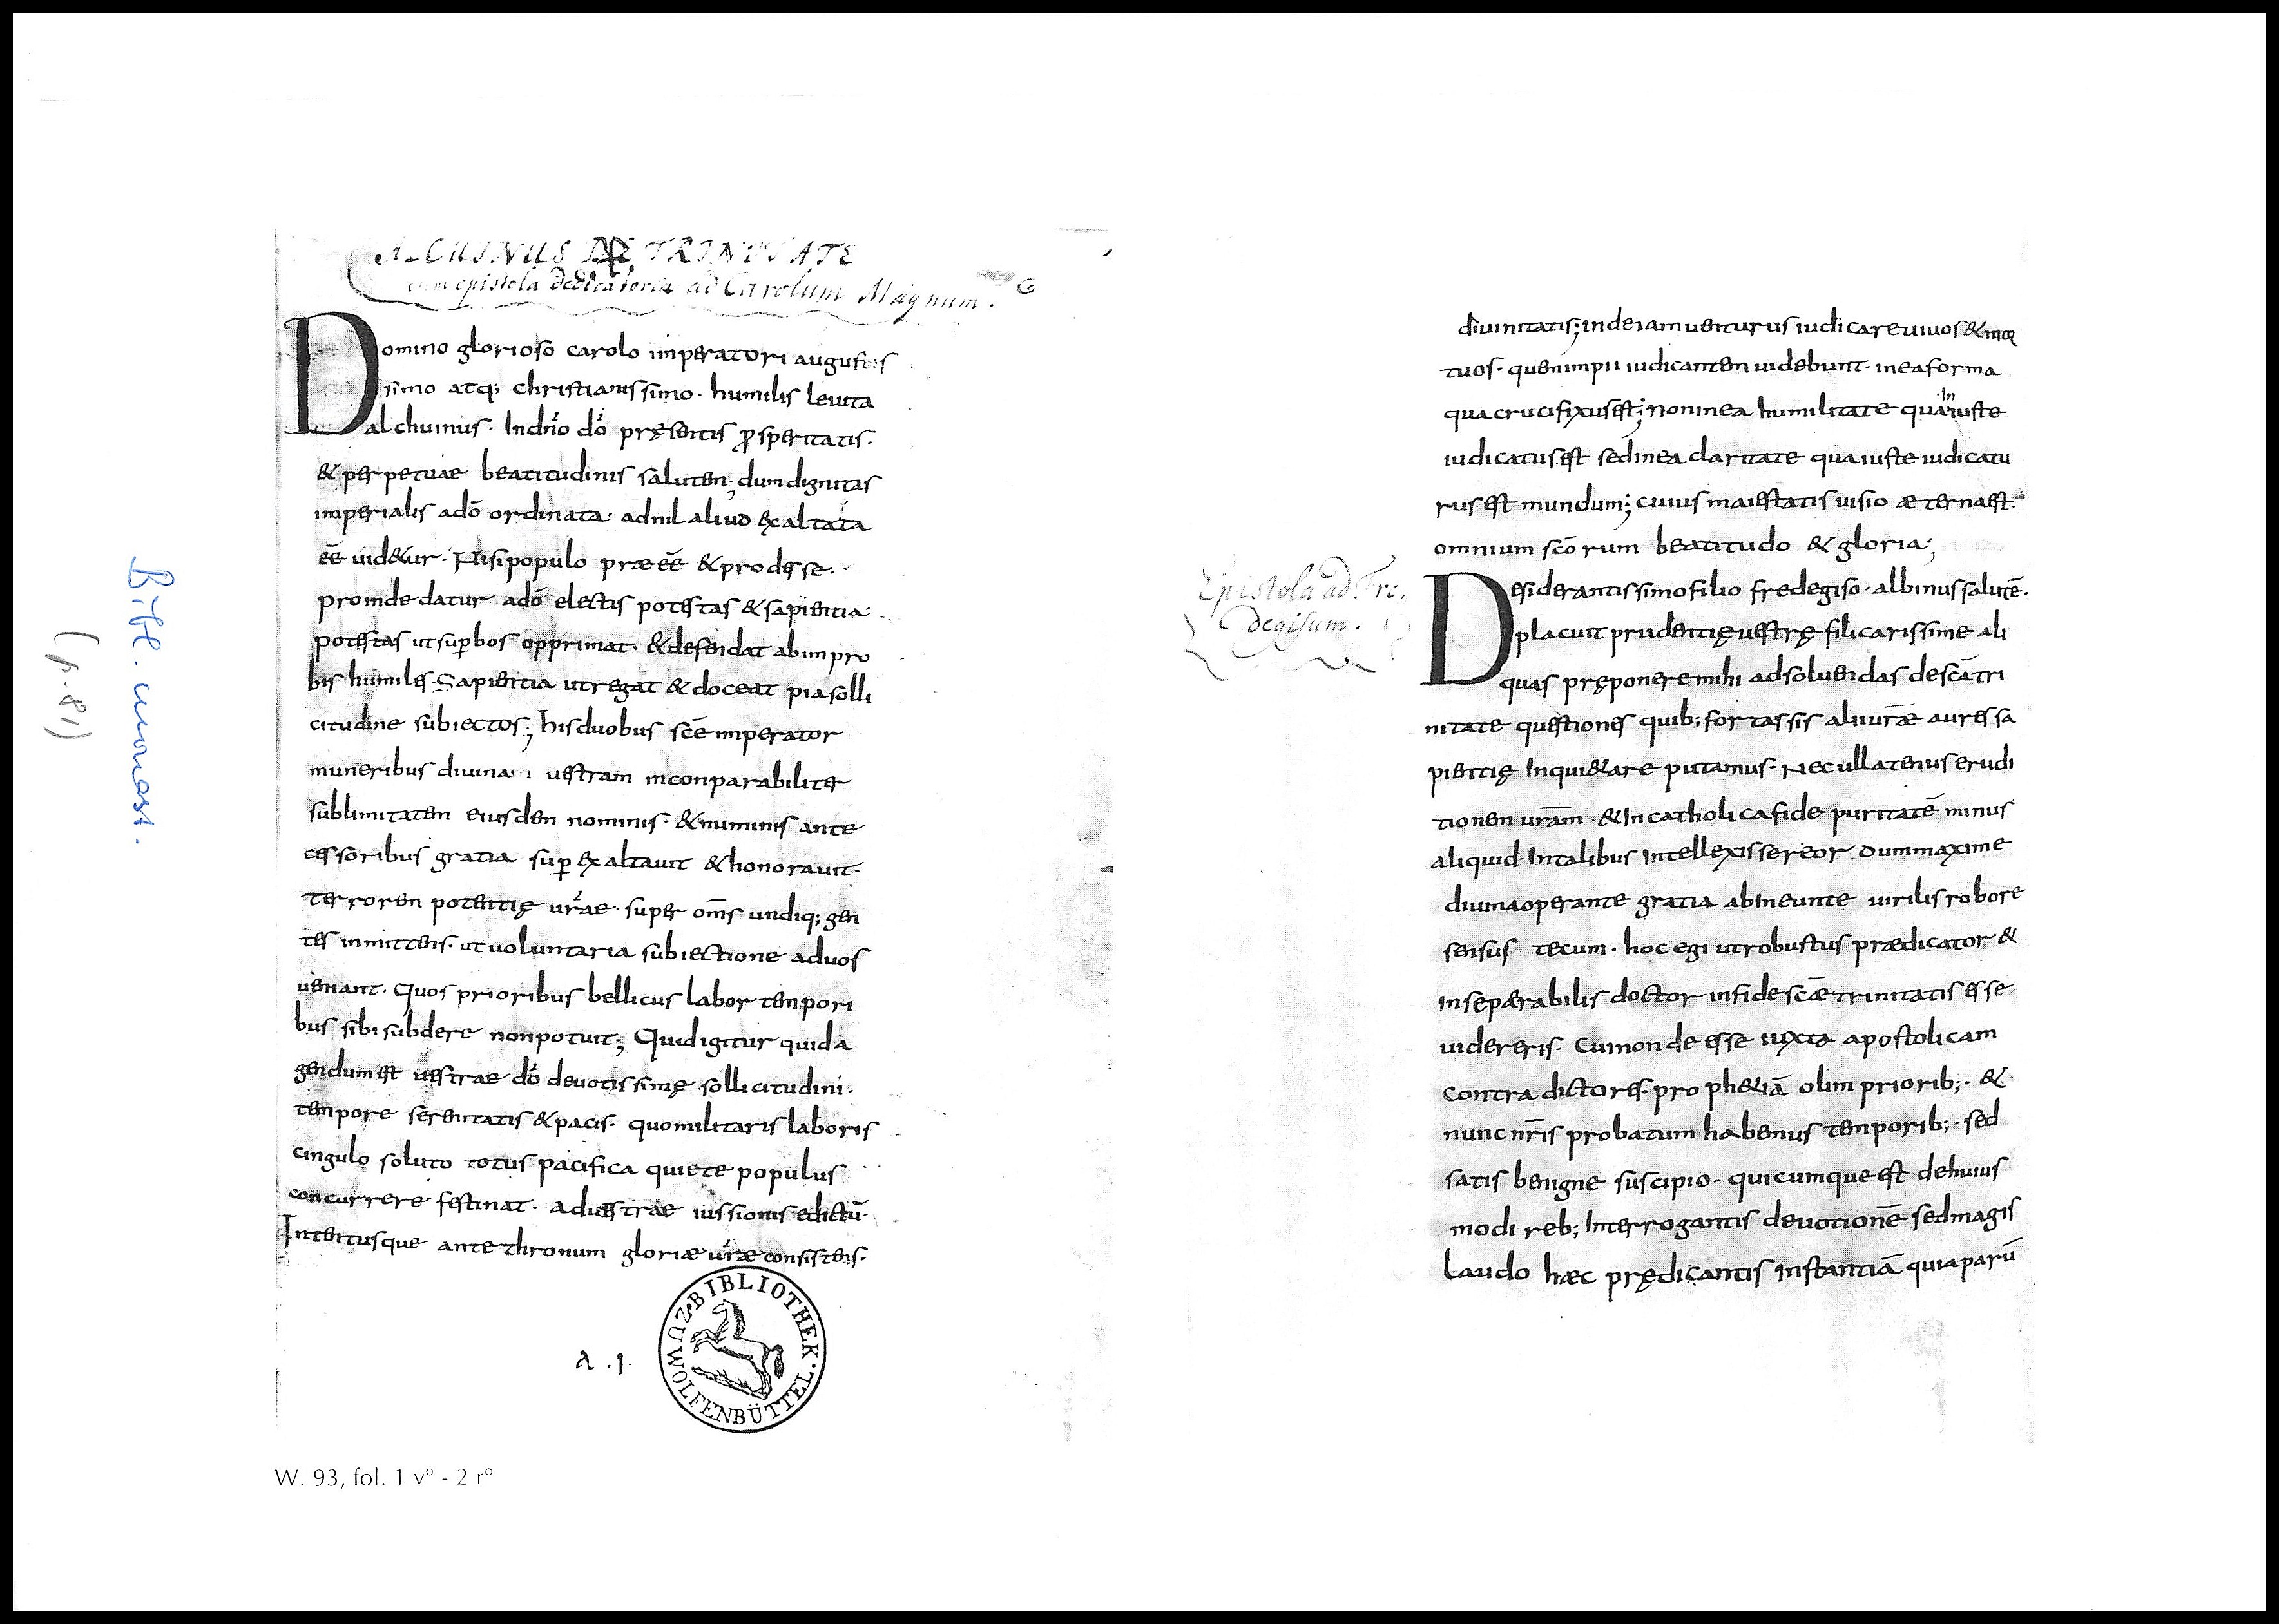 ALCUINUS DE TRINITATE
cum epistola dedicatoria ad Carolum Magnum.
Domino glorioso carolo imperatori augustis
simo atq; christianissimo· humilis leuita
alchuinus· In dn̄o dō pręsentis ꝓsperitatis·
& perpetuae beatitudinis salutem; dum dignitas
imperialis adō ordinata· adnil aliud exaltata
eē uid&ur· Nisi populo praeeē & prodesse·
proinde datur adō electis potestas & sapientia
potestas ut suꝑbos opprimat· & defendat ab impro
bis humiles Sapientia ut regat & doceat pia solli
citudine subiectos; his duobus scē imperator
muneribus diuina uestram inconparabiliter
sublimitatem eiusdem nominis· & numinis ante
cessoribus gratia suꝑexaltauit & honorauit·
terrorem potentię urāe super om̄s undiq; gen
tes inmittens· ut uoluntaria subiectione ad uos
ueniant· Quos prioribus bellicus labor tempori
bus sibi subdere non potuit; Quid igitur quid a
gendum est uestrae dō deuotissimę sollicitudini·
tempore serenitatis & pacis· quo militaris laboris
cingulo soluto totus pacifica quiete populus
concurrere festinat· ad uestrae iussionis edictū·
Intentusque ante thronum gloriæ urāe consistens·
a.1.
BIBLIOTHEK·WOLFENBÜTTEL
W. 93, fol. 1 v° - 2 r°
(p. 81)
diuinitatis; inde iam uenturus iudicare uiuos & mor
tuos· quem impii iudicantem uidebunt· in ea forma
qua crucifixus est; non in ea humilitate qua iniuste
iudicatus est sed in ea claritate qua iuste iudicatu
rus est mundum; cuius maiestatis uisio æterna est·
omnium scōrum beatitudo & gloria;
Epistola ad Fre,
degisum.
Desiderantissimo filio fredegiso· albinus salutē·
placuit prudentię uestrę fili carissime ali
quas pręponere mihi ad soluendas de scā tri
nitate questiones quib; fortassis alii uræ aures sa
pientię Inqui&are putamus· Nec ullatenus erudi
tionem urām· & In catholica fide puritatē minus
aliquid In talibus Intellexisse reor dum maxime
diuina operante gratia ab Ineunte uirilis robore
sensus tecum· hoc egi ut robustus prædicator &
Inseparabilis doctor in fide scæ trinitatis esse
uidereris· Cui non deesse iuxta apostolicam
contradictores· proph&iā olim priorib;· &
nunc nr̄is probatum habemus temporib;· sed
satis benigne suscipio· quicumque est de huius
modi reb; Interrogantis deuotionē sed magis
laudo hæc prędicantis Instantiā quia parū